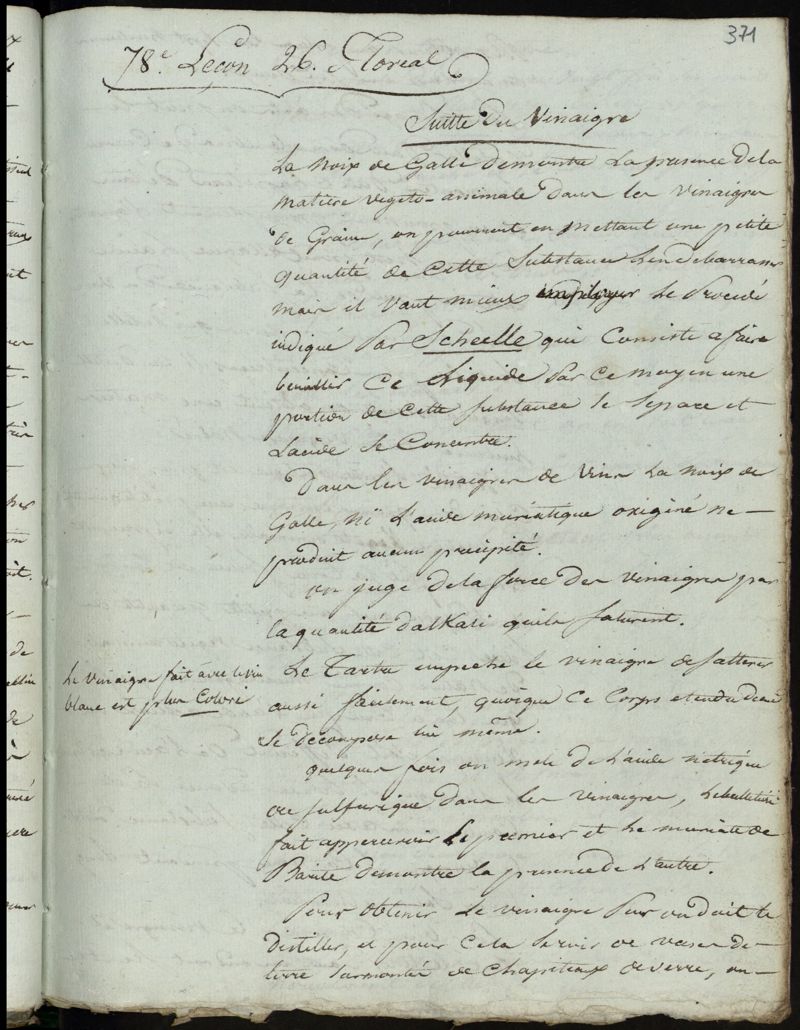 371
78e. Leçon 26. Floreal
Suitte du Vinaigre
La noix de Galle demontre la presence de la
matiere vegeto-animale dans les vinaigres
de Grains, on pourroit en mettant une petite
quantité de cette Substance l'en debarrasser
mais il vaut mieux employer le Procédé
indiqué Par Scheelle qui Consiste a faire
bouillir ce liquide Par ce moyen une
portion de cette substance se separe et
L'acide se Concentre.
Dans les vinaigres de Vins La noix de
Galle, ni L'acide muriatique oxigéné ne —
produit aucun precipité.
on juge de la force des vinaigres par
la quantité d'alkali qu'ils saturent.
Le Tartre empeche le vinaigre de s'alterer
aussi facilement, quoique ce Corps etendu d'eau
se decompose lui même.
Le vinaigre fait avec le vin
blanc est plus Coloré
quelques fois on mele de L'acide nitrique
ou sulfurique dans les vinaigres,
fait appercevoir le premier et le muriate de
Barite demontre la presence de L'autre.
Pour obtenir le vinaigre Pur on doit le
distiller, et pour cela se servir de vases de —
terre surmontés de Chapiteaux de verre, on —